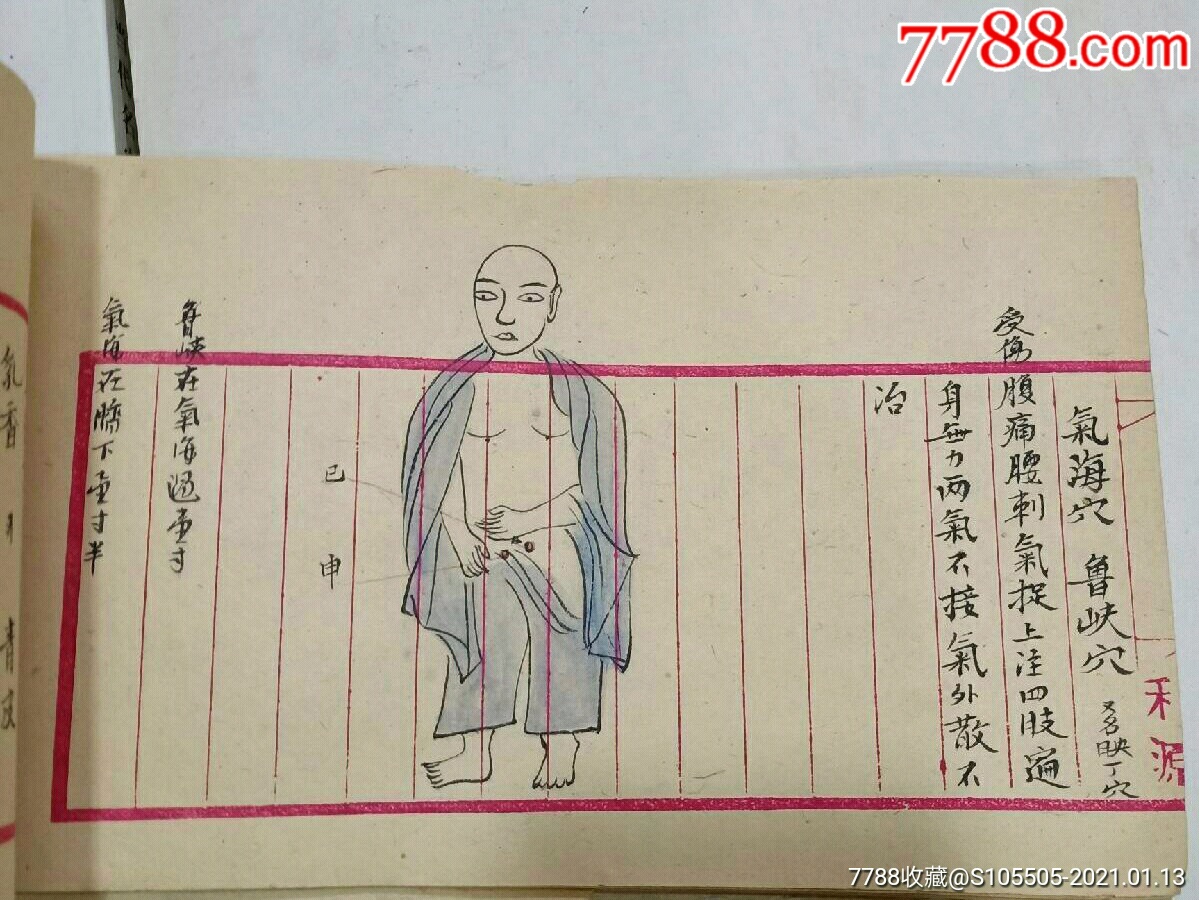 7788.com
利源
氣海穴 魯峽穴 又名映丁穴
受傷腹痛腰刺氣捉上注四肢遍
身無力两氣不接氣外散不
治
巳
申
魯峽在氣海過壹寸
氣海在臍下壹寸半
氣香
青皮
7788收藏@S105505-2021.01.13